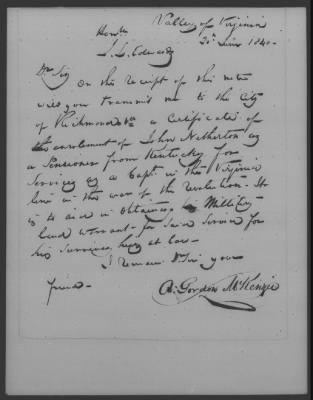 Valley of Virginia
Honbl
J. L. Edwards
Dr Sir On the receipt of this note
will you transmit me to the City
of Richmond Va a Certificate of
the enrolment of John Netherton as
a Pensioner from Kentucky for
Services as a Capt. in the Virginia
line in the war of the revolution. It
is to aid in obtaining Military
land warrant for said Service for
his surviving heirs at law-
I remain Dr Sir your
friend-
A: Gordon McKenzie